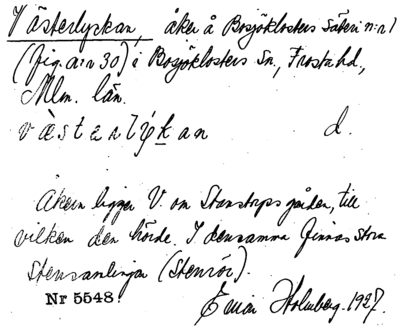 Västerlyckan, åker å Bosjöklosters säteri n:r 1
(fig. a:n 30) i Bosjöklosters Sn, Frosta hd,
Mlm. län.
v ὲ s t e ɹ l ẏ k a n d.
Åkern ligger V. om Stenstorpsgården, till
vilken den hörde. I densamma finnas stora
Stensamlingar (Stenrör).
Nr 5548. Einar Holmberg. 1927.